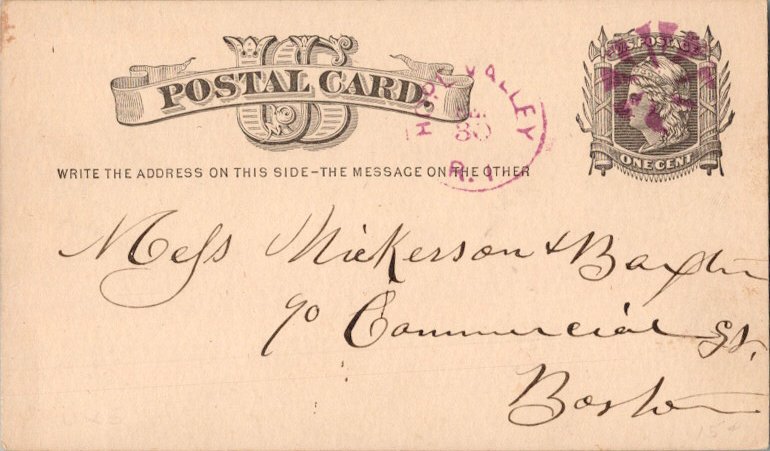 US
POSTAL CARD.
HOPE VALLEY
30
R.I.
U.S. POSTAGE
ONE CENT
WRITE THE ADDRESS ON THIS SIDE-THE MESSAGE ON THE OTHER
Mess Nickerson & Baxter
90 Commercial St.
Boston